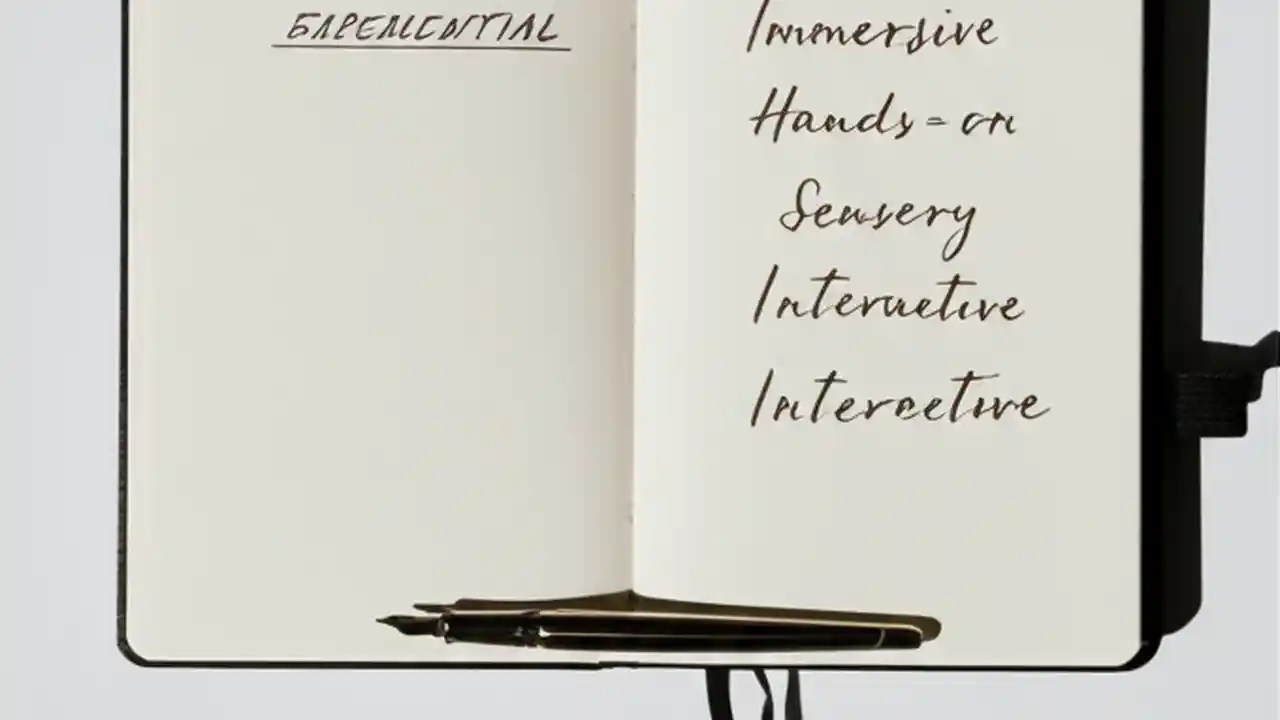 Immersive
Hands-on
Sensery
Interactive
Interective